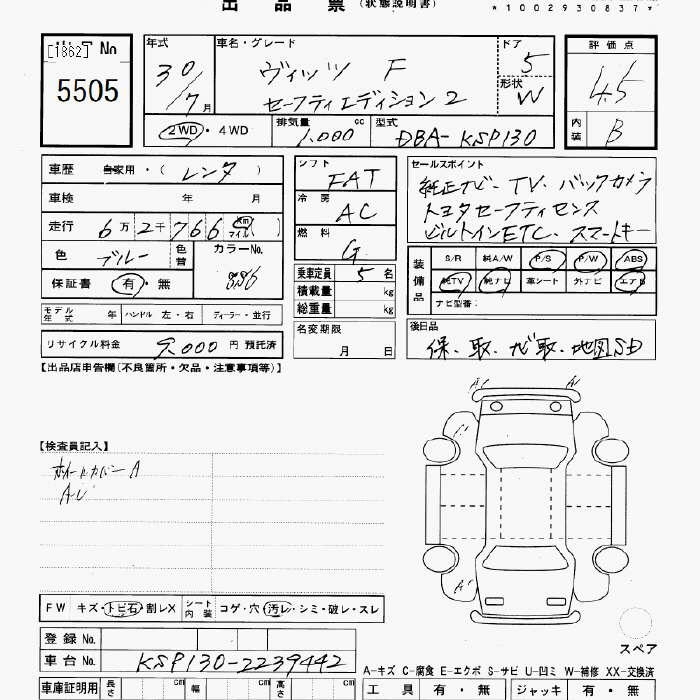 出 品 票 (状態説明書)
*1002930837*
[1862] No
5505
年式
30/7月
車名・グレード
ヴィッツ F
セーフティエディション2
ドア
5
形状
W
評価点
4.5
内装
B
2WD・4WD
排気量 cc
1.000
型式
DBA-KSP130
車歴 自家用・(レンタ)
車検 年 月
走行 6万2千766 Km マイル( )
色 ブルー
色替
カラーNo.
8S6
保証書 有・無
モデル年式 年 ハンドル 左・右 ディーラー・並行
リサイクル料金 9.000 円 預託済
シフト
FAT
冷房
AC
燃料
G
乗車定員 5 名
積載量 kg
総重量 kg
名変期限
月 日
セールスポイント
純正ナビ・TV・バックカメラ
トヨタセーフティセンス
ビルトインETC・スマートキー
装備品
S/R 純A/W P/S P/W ABS
純TV 純ナビ 革シート 外ナビ エアB
ナビ型番:
後日品
保、取、ナビ取、地図SD
【出品店申告欄(不良箇所・欠品・注意事項等)】
【検査員記入】
ホイールカバーA
AU
A' A'
A'
スペア
FW キズ・トビ石・割レX
シート内装 コゲ・穴・汚レ・シミ・破レ・スレ
登録 No.
車台 No. KSP130-2239442
A-キズ C-腐食 E-エクボ S-サビ U-凹ミ W-補修 XX-交換済
車庫証明用 長さ cm 幅 cm 高さ cm
工具 有・無 ジャッキ 有・無